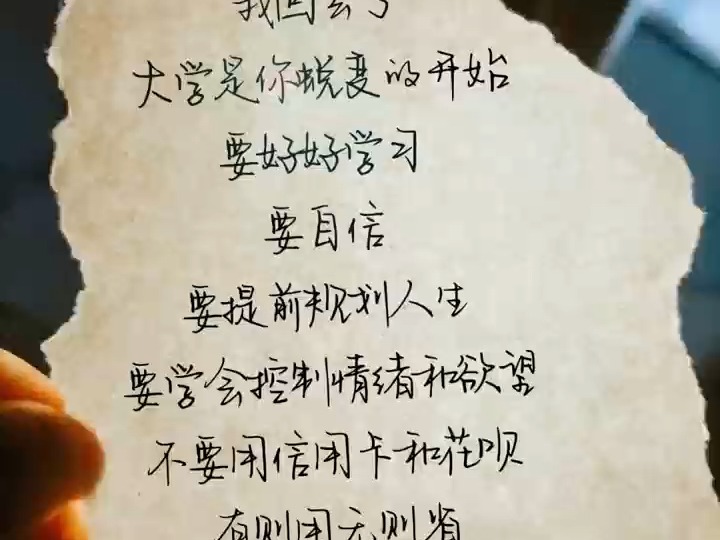 大学是你蜕变的开始
要好好学习
要自信
要提前规划人生
要学会控制情绪和欲望
不要用信用卡和花呗
有则用无则省